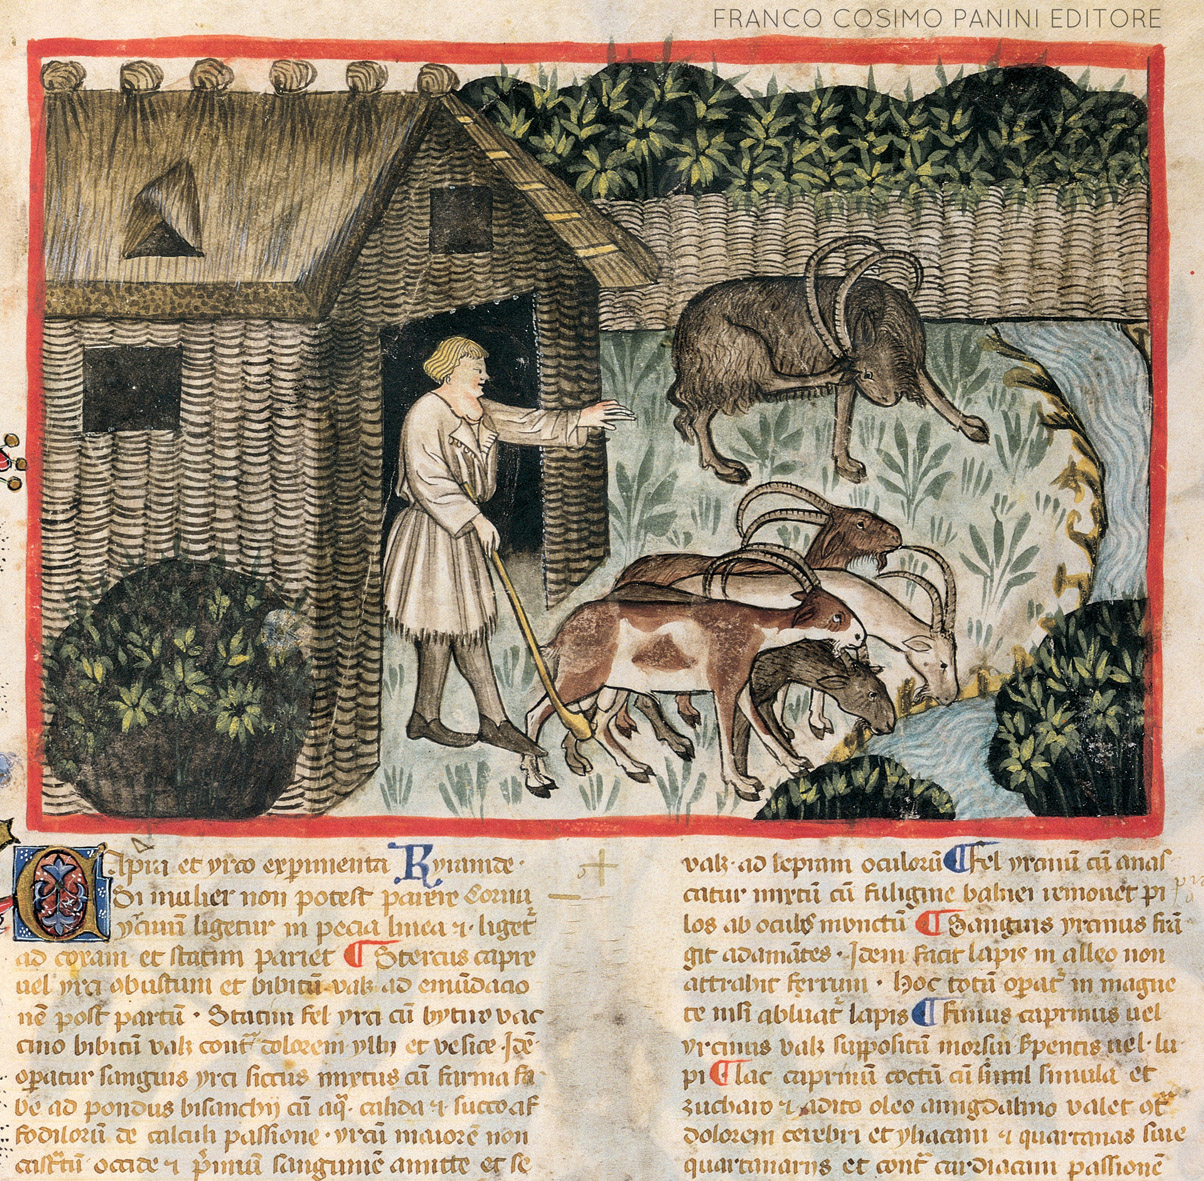 FRANCO COSIMO PANINI EDITORE
Capra et yrco experimenta Kyranide ·
Si mulier non potest parere Cornu
yrcinū ligetur in pecia linea ⁊ · liget᷑
ad coxam et statim pariet ¶ Stercus capre
uel yrci obustum et bibitū · valꝫ ad emūdacio
nē post partū · Statim fel yrci cū bytiro vac
cino bibitū valꝫ cont᷑ dolorem · ylly et vesice · Idē
opatur sanguis yrci siccus mixtus cū farina fa
be ad pondus bisanchij cū aq̄ · calida ⁊ succo af
fodilorū de calculi passione · yrcū maiorē non
cast᷑tū occide ⁊ p̄mum sanguinē amitte et se
valꝫ · ad lepram oculorū ¶ fel yrcinū cū anas
catur mixtū cū fuligine balnei remouet pi
los ab oculis inūctū ¶ Sanguis yrcinus frā
git adamātes · Idem facit lapis in alleo non
attrahit ferrum · hoc totū opat᷑ in magne
te nisi abluat᷑ lapis ¶ fimus caprinus uel
yrcinus valꝫ suppositū morsui sꝑentis uel lu
pi ¶ lac caprinū coctū cū simila et
zucharo ⁊ adito oleo amigdalino valet ↄt᷑
dolorem cerebri et yliacam ⁊ quartanas siue
quartanarijs et cont᷑ cardiacam passionē